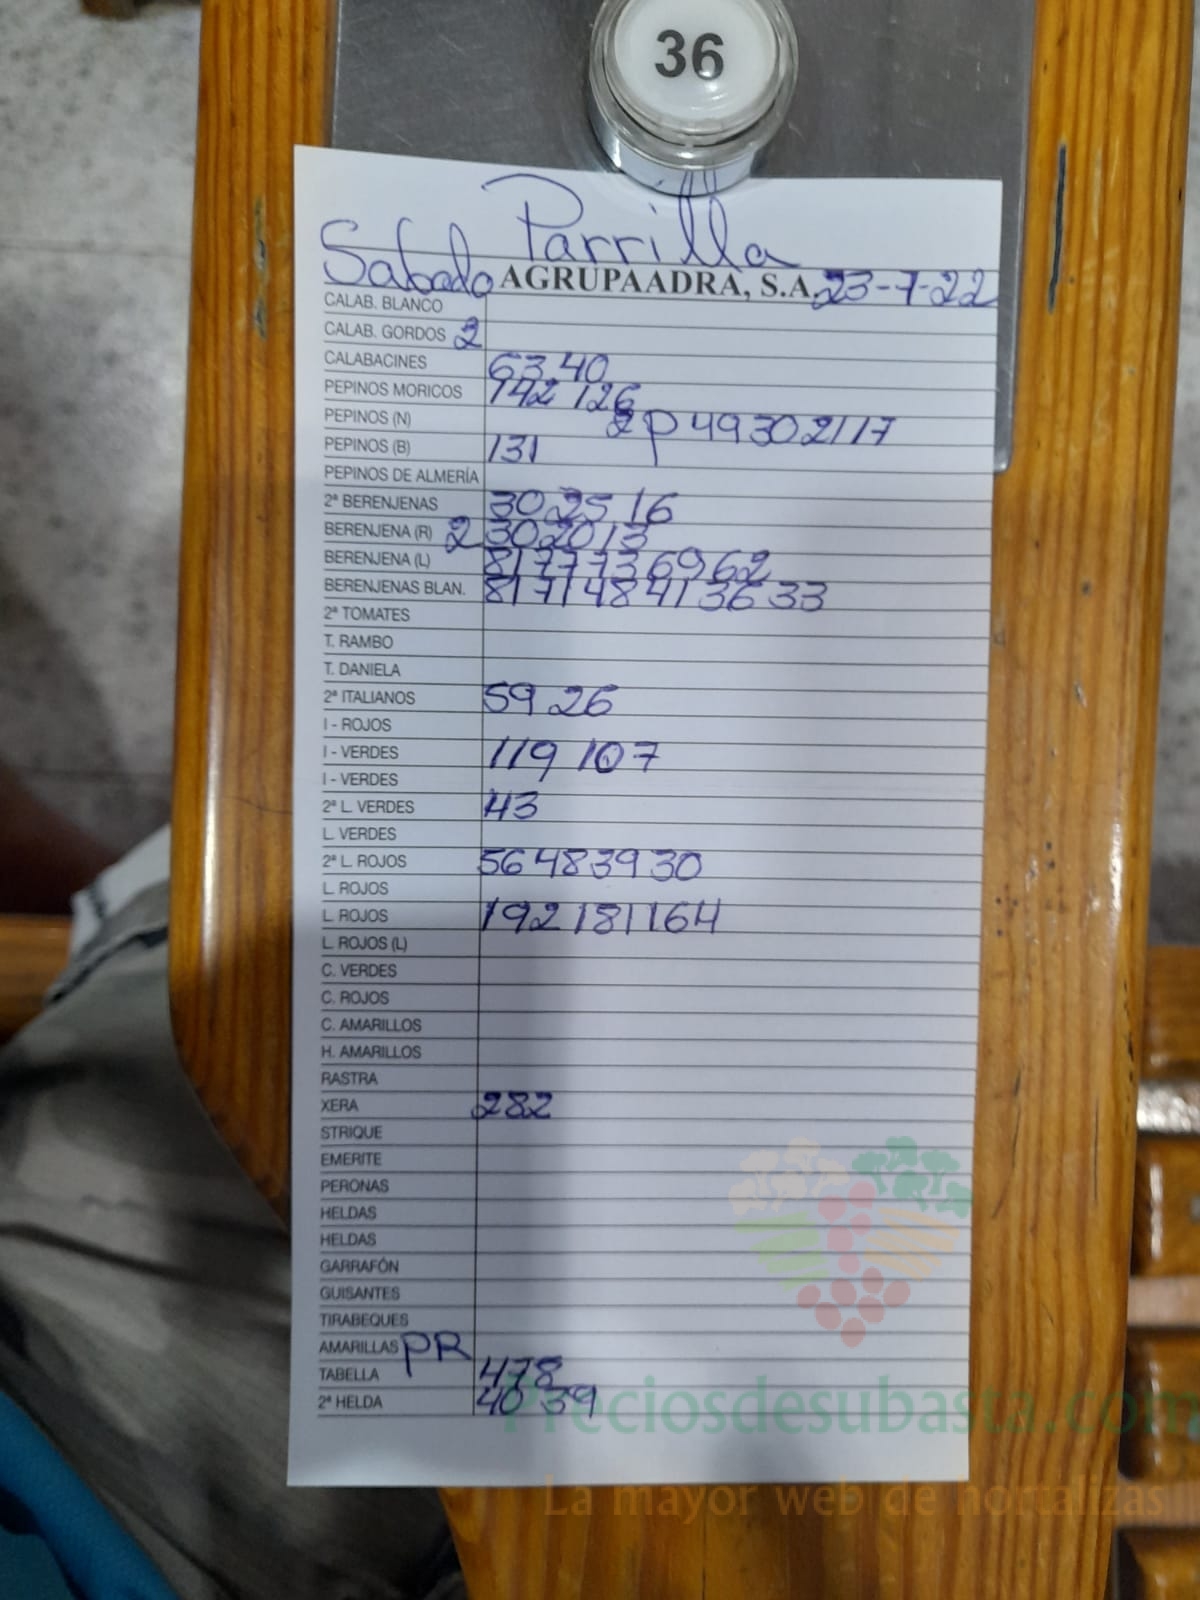 36
Parrilla
Sabado AGRUPAADRA, S.A. 23-7-22
CALAB. BLANCO
CALAB. GORDOS 2
CALABACINES 63 40
PEPINOS MORICOS 142 126
PEPINOS (N) 2P 49 30 21 17
PEPINOS (B) 131
PEPINOS DE ALMERÍA
2ª BERENJENAS 30 25 16
BERENJENA (R) 2 30 20 13
BERENJENA (L) 81 77 73 69 62
BERENJENAS BLAN. 81 71 48 41 36 33
2ª TOMATES
T. RAMBO
T. DANIELA
2ª ITALIANOS 59 26
I - ROJOS
I - VERDES 119 107
I - VERDES
2ª L. VERDES 43
L. VERDES
2ª L. ROJOS 56 48 39 30
L. ROJOS
L. ROJOS 192 181 164
L. ROJOS (L)
C. VERDES
C. ROJOS
C. AMARILLOS
H. AMARILLOS
RASTRA
XERA 282
STRIQUE
EMERITE
PERONAS
HELDAS
HELDAS
GARRAFÓN
GUISANTES
TIRABEQUES
AMARILLAS PR
TABELLA 478
2ª HELDA 40 39
Preciosdesubasta.com
La mayor web de hortalizas